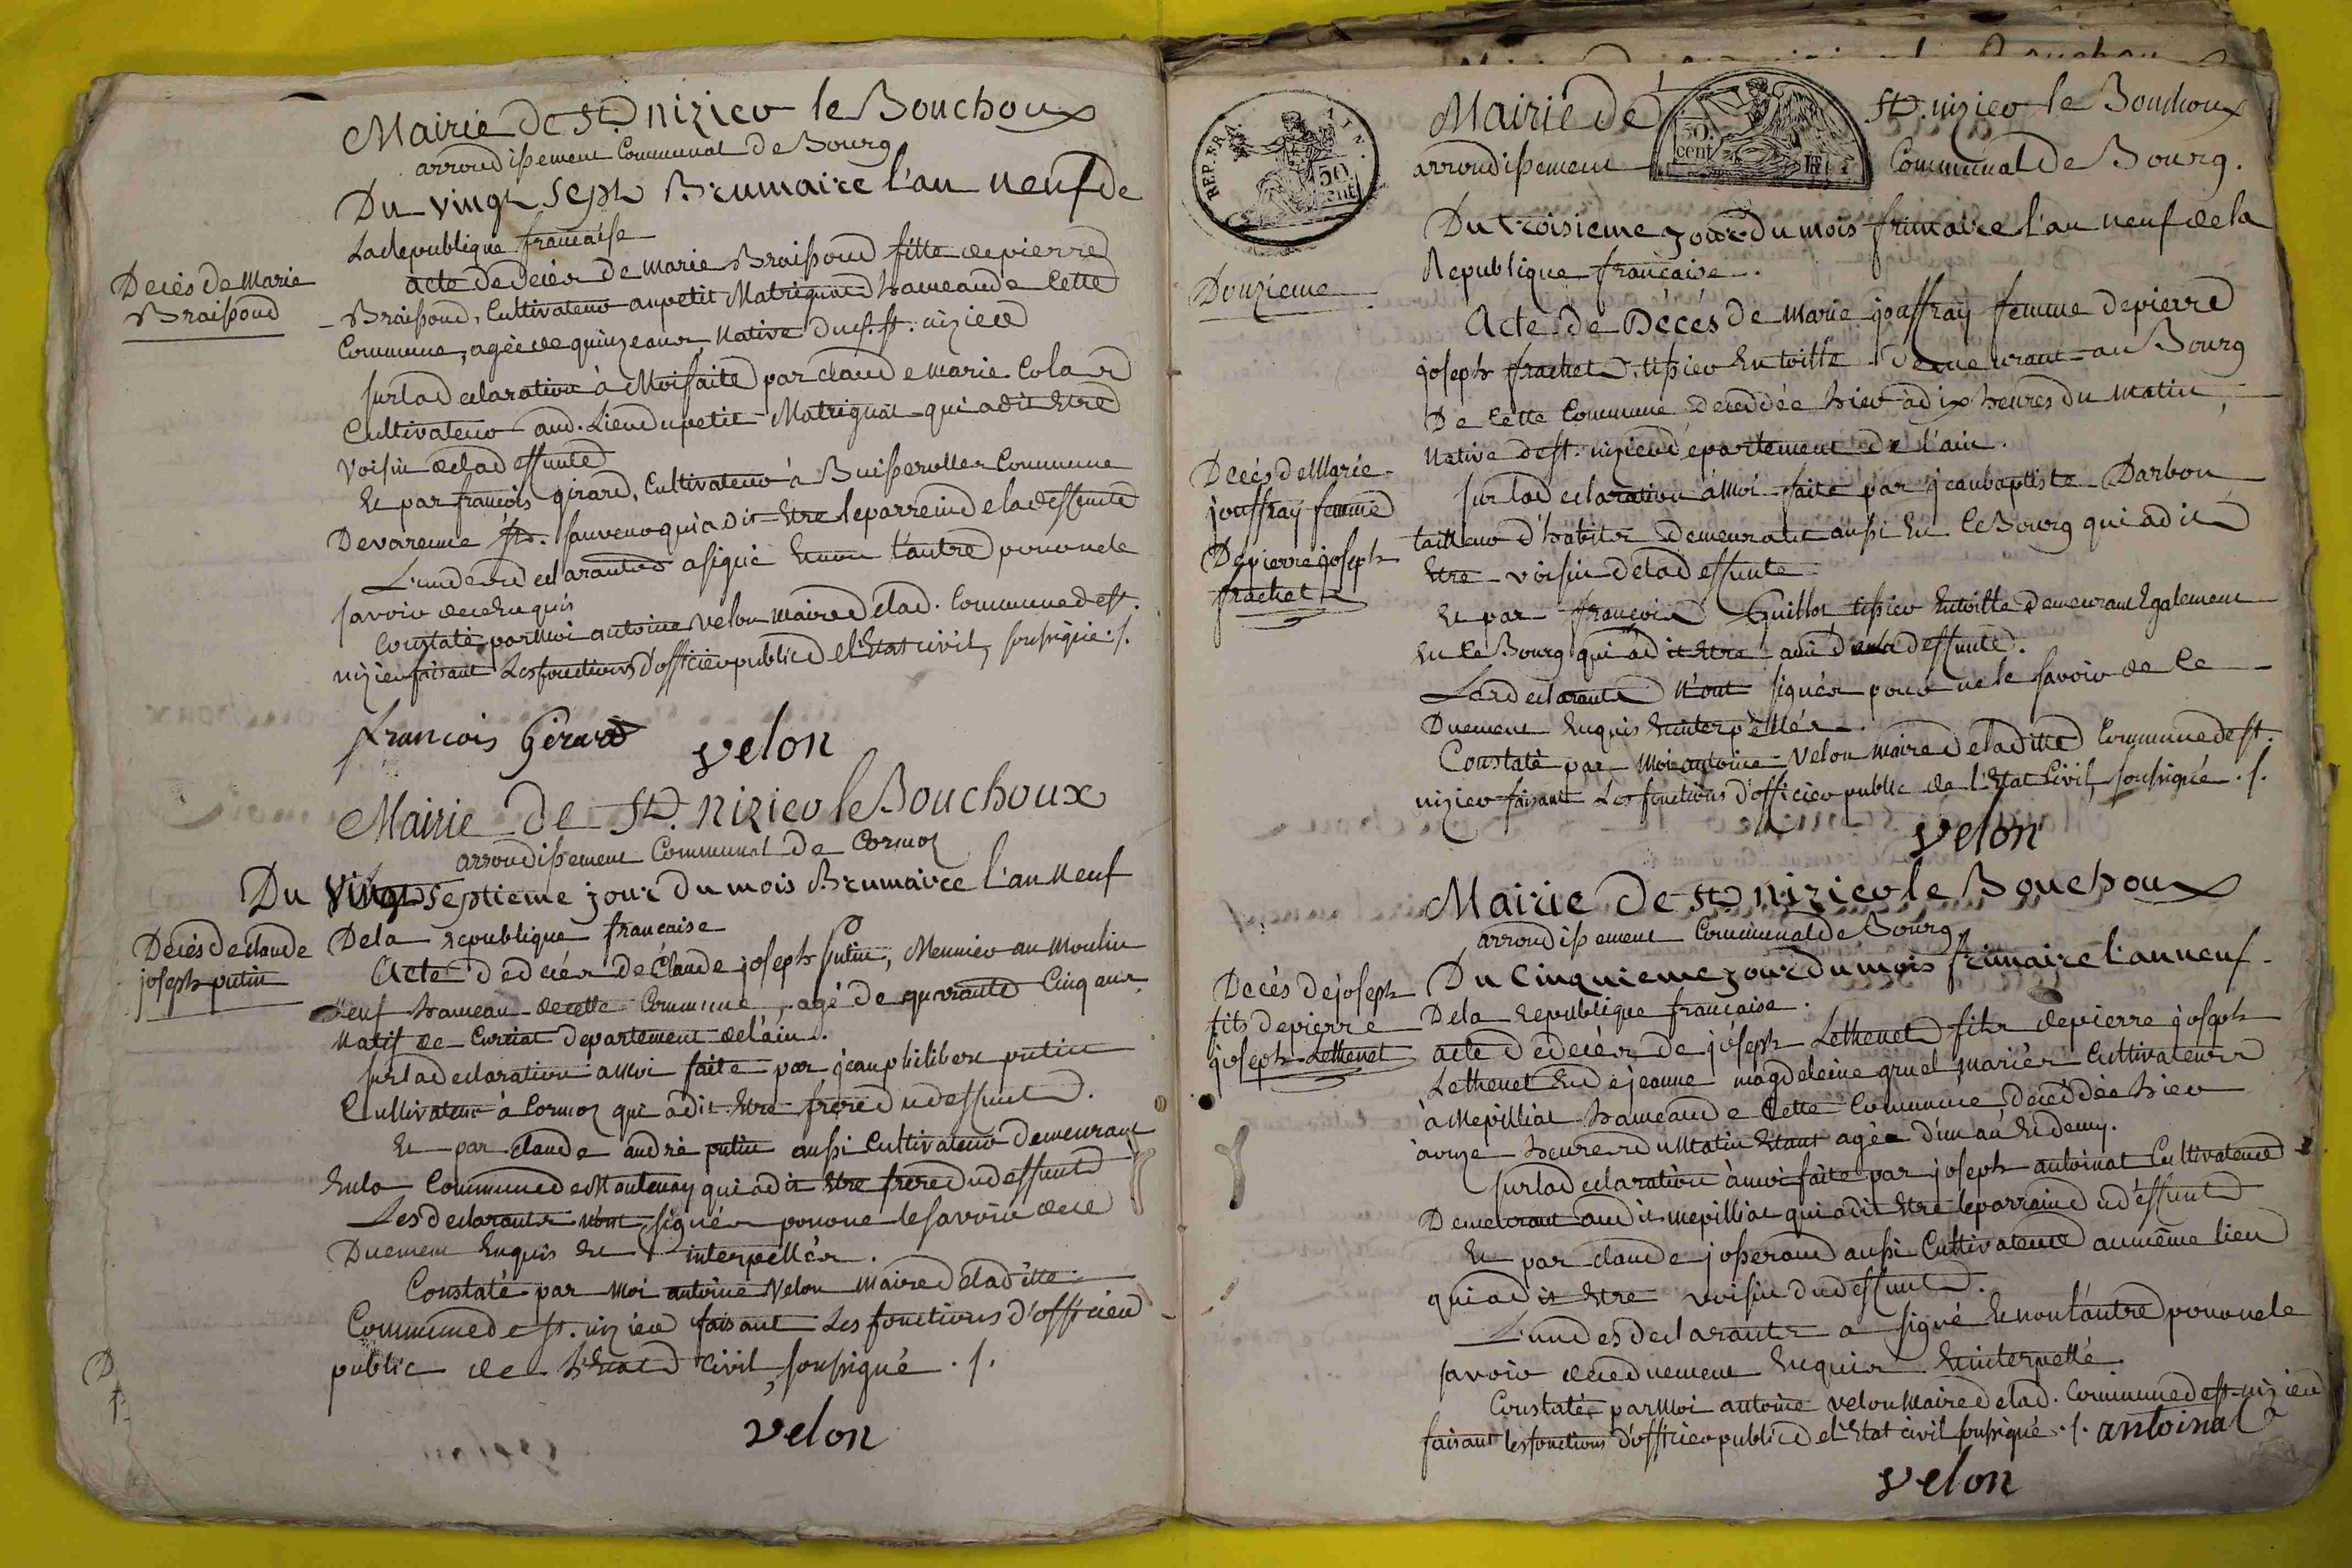 Mairie de St. nizier le Bouchoux
arrondissement Communal de Bourg
Du vingt sept Brumaire l'an neuf de
La Republique française
Decès de Marie
Braissoud
acte de decès de marie Braissoud fille de pierre
Braissoud, Cultivateur au petit Matrignat hameau de Cette
Commune, agée de quinze ans, Native dud. st. nizier
sur la declaration à Moi faite par claude marie Colas
Cultivateur aud. Lieu du petit Matrignat qui a dit Etre
Voisin de la deffunte
Et par françois girard, Cultivateur à Buisserolles Commune
De varenne st. sauveur qui a dit Etre le parrein de la deffunte
L'un des declarants a signé Et non l'autre pour ne le
savoir de ce Enquis
Constaté par Moi antoine velon maire de lad. Commune de st.
nizier faisant Les fonctions d'officier public de l'Etat civil, soussigné ./.
françois Gérard
velon
Mairie de St. nizier le Bouchoux
arrondissement Communal de Cormoz
Du Vingt septieme jour du mois Brumaire l'an Neuf
De la republique française
Decès de claude
joseph putin
Acte de decès de Claude joseph putin, Meunier au Moulin
neuf hameau de cette Commune, agé de quarante Cinq ans
Natif de Curciat departement de l'ain.
sur la declaration a Moi faite par jean philibert putin
Cultivateur à Cormoz qui a dit Etre frere du deffunt.
Et par claude andré putin aussi Cultivateur demeurant
En la Commune de Montenay qui a dit Etre frere du deffunt
Les declarants n'ont signés pour ne le savoir de ce
Duement Enquis Et interpellés.
Constaté par Moi antoine Velon maire de la ditte
Commune de st. nizier faisant Les fonctions d'officier
public de l'Etat civil, soussigné ./.
velon
REP. FRA.
50 cent
Mairie de St. nizier le Bouchoux
50. cent
arrondissement Communal de Bourg.
Du troisieme jour du mois frimaire l'an neuf de la
Republique française.
Douzieme
Acte de Décès de Marie jouffray femme de pierre
joseph frachet, tissier En toille demeurant au Bourg
De Cette Commune decedée hier à dix heures du matin,
Native de st. nizier departement de l'ain.
Decès de Marie
jouffray femme
De pierre joseph
frachet
sur la declaration à Moi faite par jean baptiste Darbon
tailleur d'habits demeurant aussi En Ce Bourg qui a dit
Etre voisin de la deffunte
Et par françois Guillot tissier En toille demeurant Egalement
En Ce Bourg qui a dit Etre ami de la deffunte.
Les declarants N'ont signés pour ne le savoir de Ce
Duement Enquis Et interpellés.
Constaté par Moi antoine Velon maire de la ditte Commune de st.
nizier faisant Les fonctions d'officier public de l'Etat Civil, soussigné ./.
velon
Mairie de St. nizier le Bouchoux
arrondissement Communal de Bourg
Du Cinquieme jour du mois frimaire l'an neuf
De la republique française.
Decès de joseph
fils de pierre
joseph Lethenet
acte de decès de joseph Lethenet fils de pierre joseph
Lethenet Et de jeanne magdeleine gruel mariés Cultivateurs
à Mepilliat hameau de Cette Commune decedée hier
à onze heures du Matin Etant agée d'un an Et demy.
sur la declaration à moi faite par joseph antoinat Cultivateur
Demeurant au dit mepilliat qui a dit Etre le parrain du deffunt
Et par claude josserand aussi Cultivateur au même lieu
qui a dit Etre voisin du deffunt.
L'un des declarants a signé Et non l'autre pour ne le
savoir de ce duement Enquis Et interpellé.
Constaté par Moi antoine velon Maire de lad. Commune de st. nizier
faisant les fonctions d'officier public de l'Etat civil soussigné ./. antoinat
velon